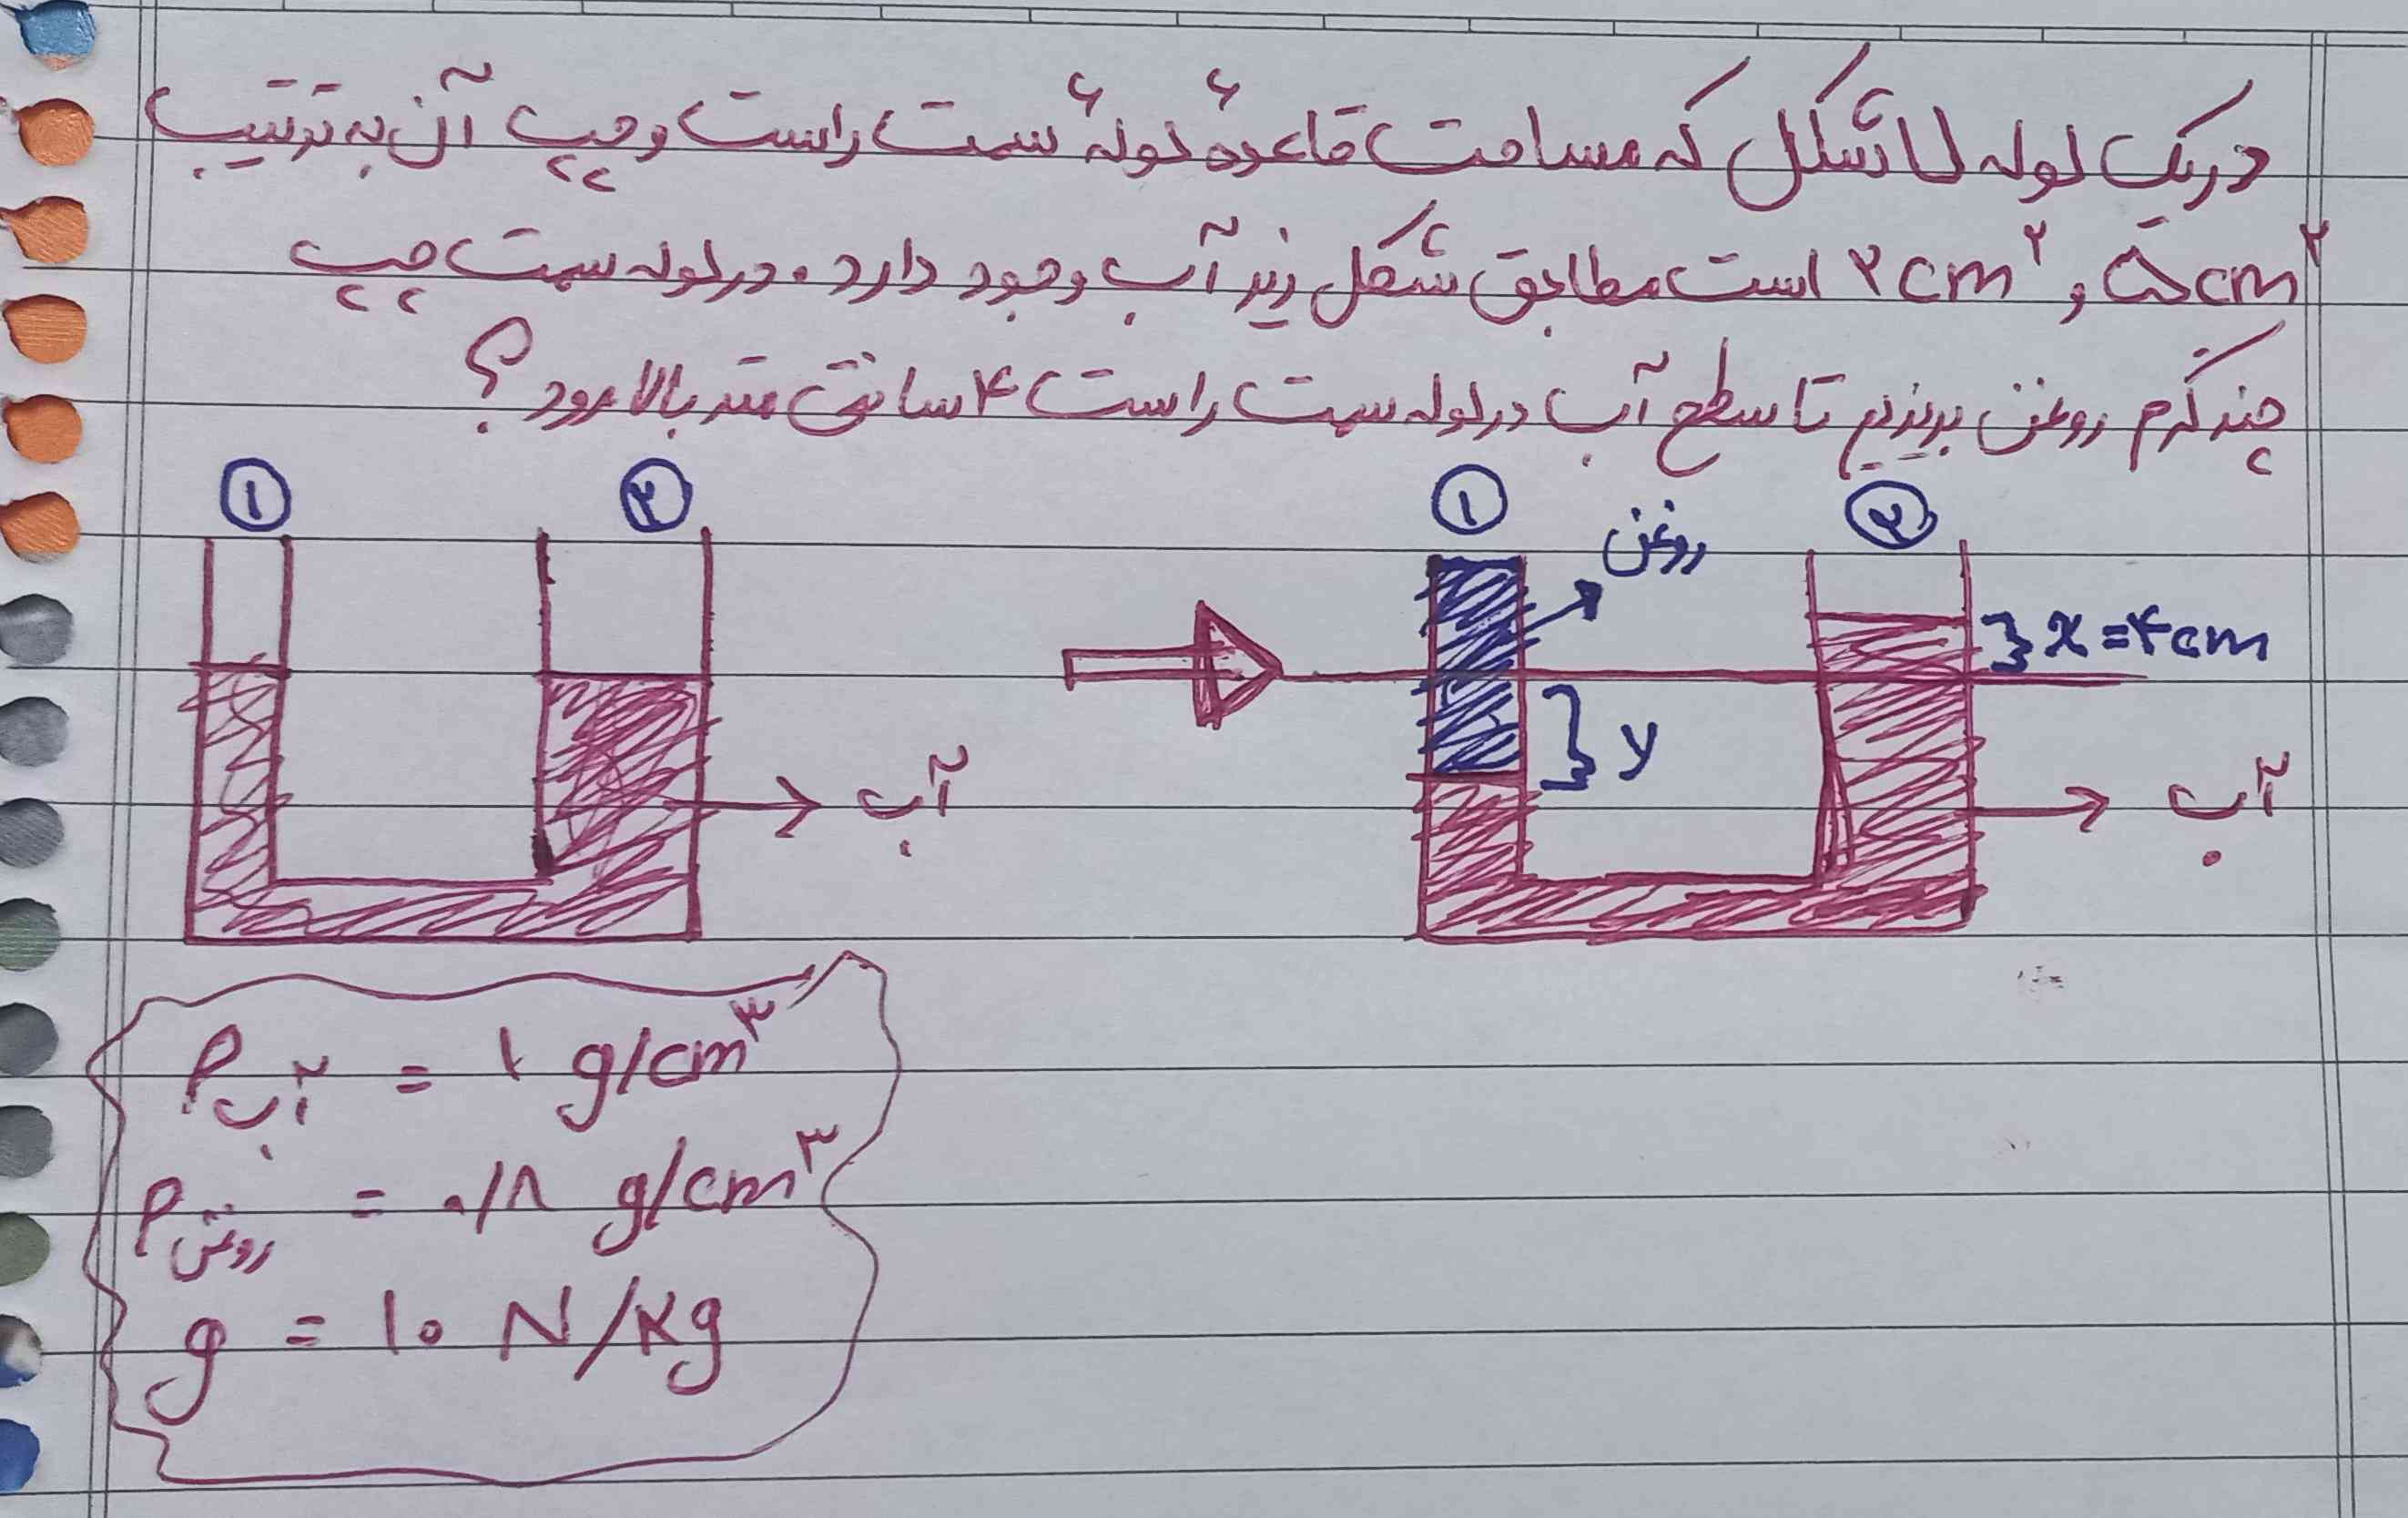 در یک لوله U شکل که مساحت قاعدهٔ لولهٔ سمت راست و چپ آن به ترتیب
۵cm² و ۲cm² است مطابق شکل زیر آب وجود دارد. در لوله سمت چپ
چند گرم روغن بریزیم تا سطح آب در لوله سمت راست ۴ سانتی متر بالا رود ؟
① ② ① ②
روغن
} x = ۴cm
} y
آب آب
ρ آب = ۱ g/cm³
ρ روغن = ۰/۸ g/cm³
g = ۱۰ N/kg